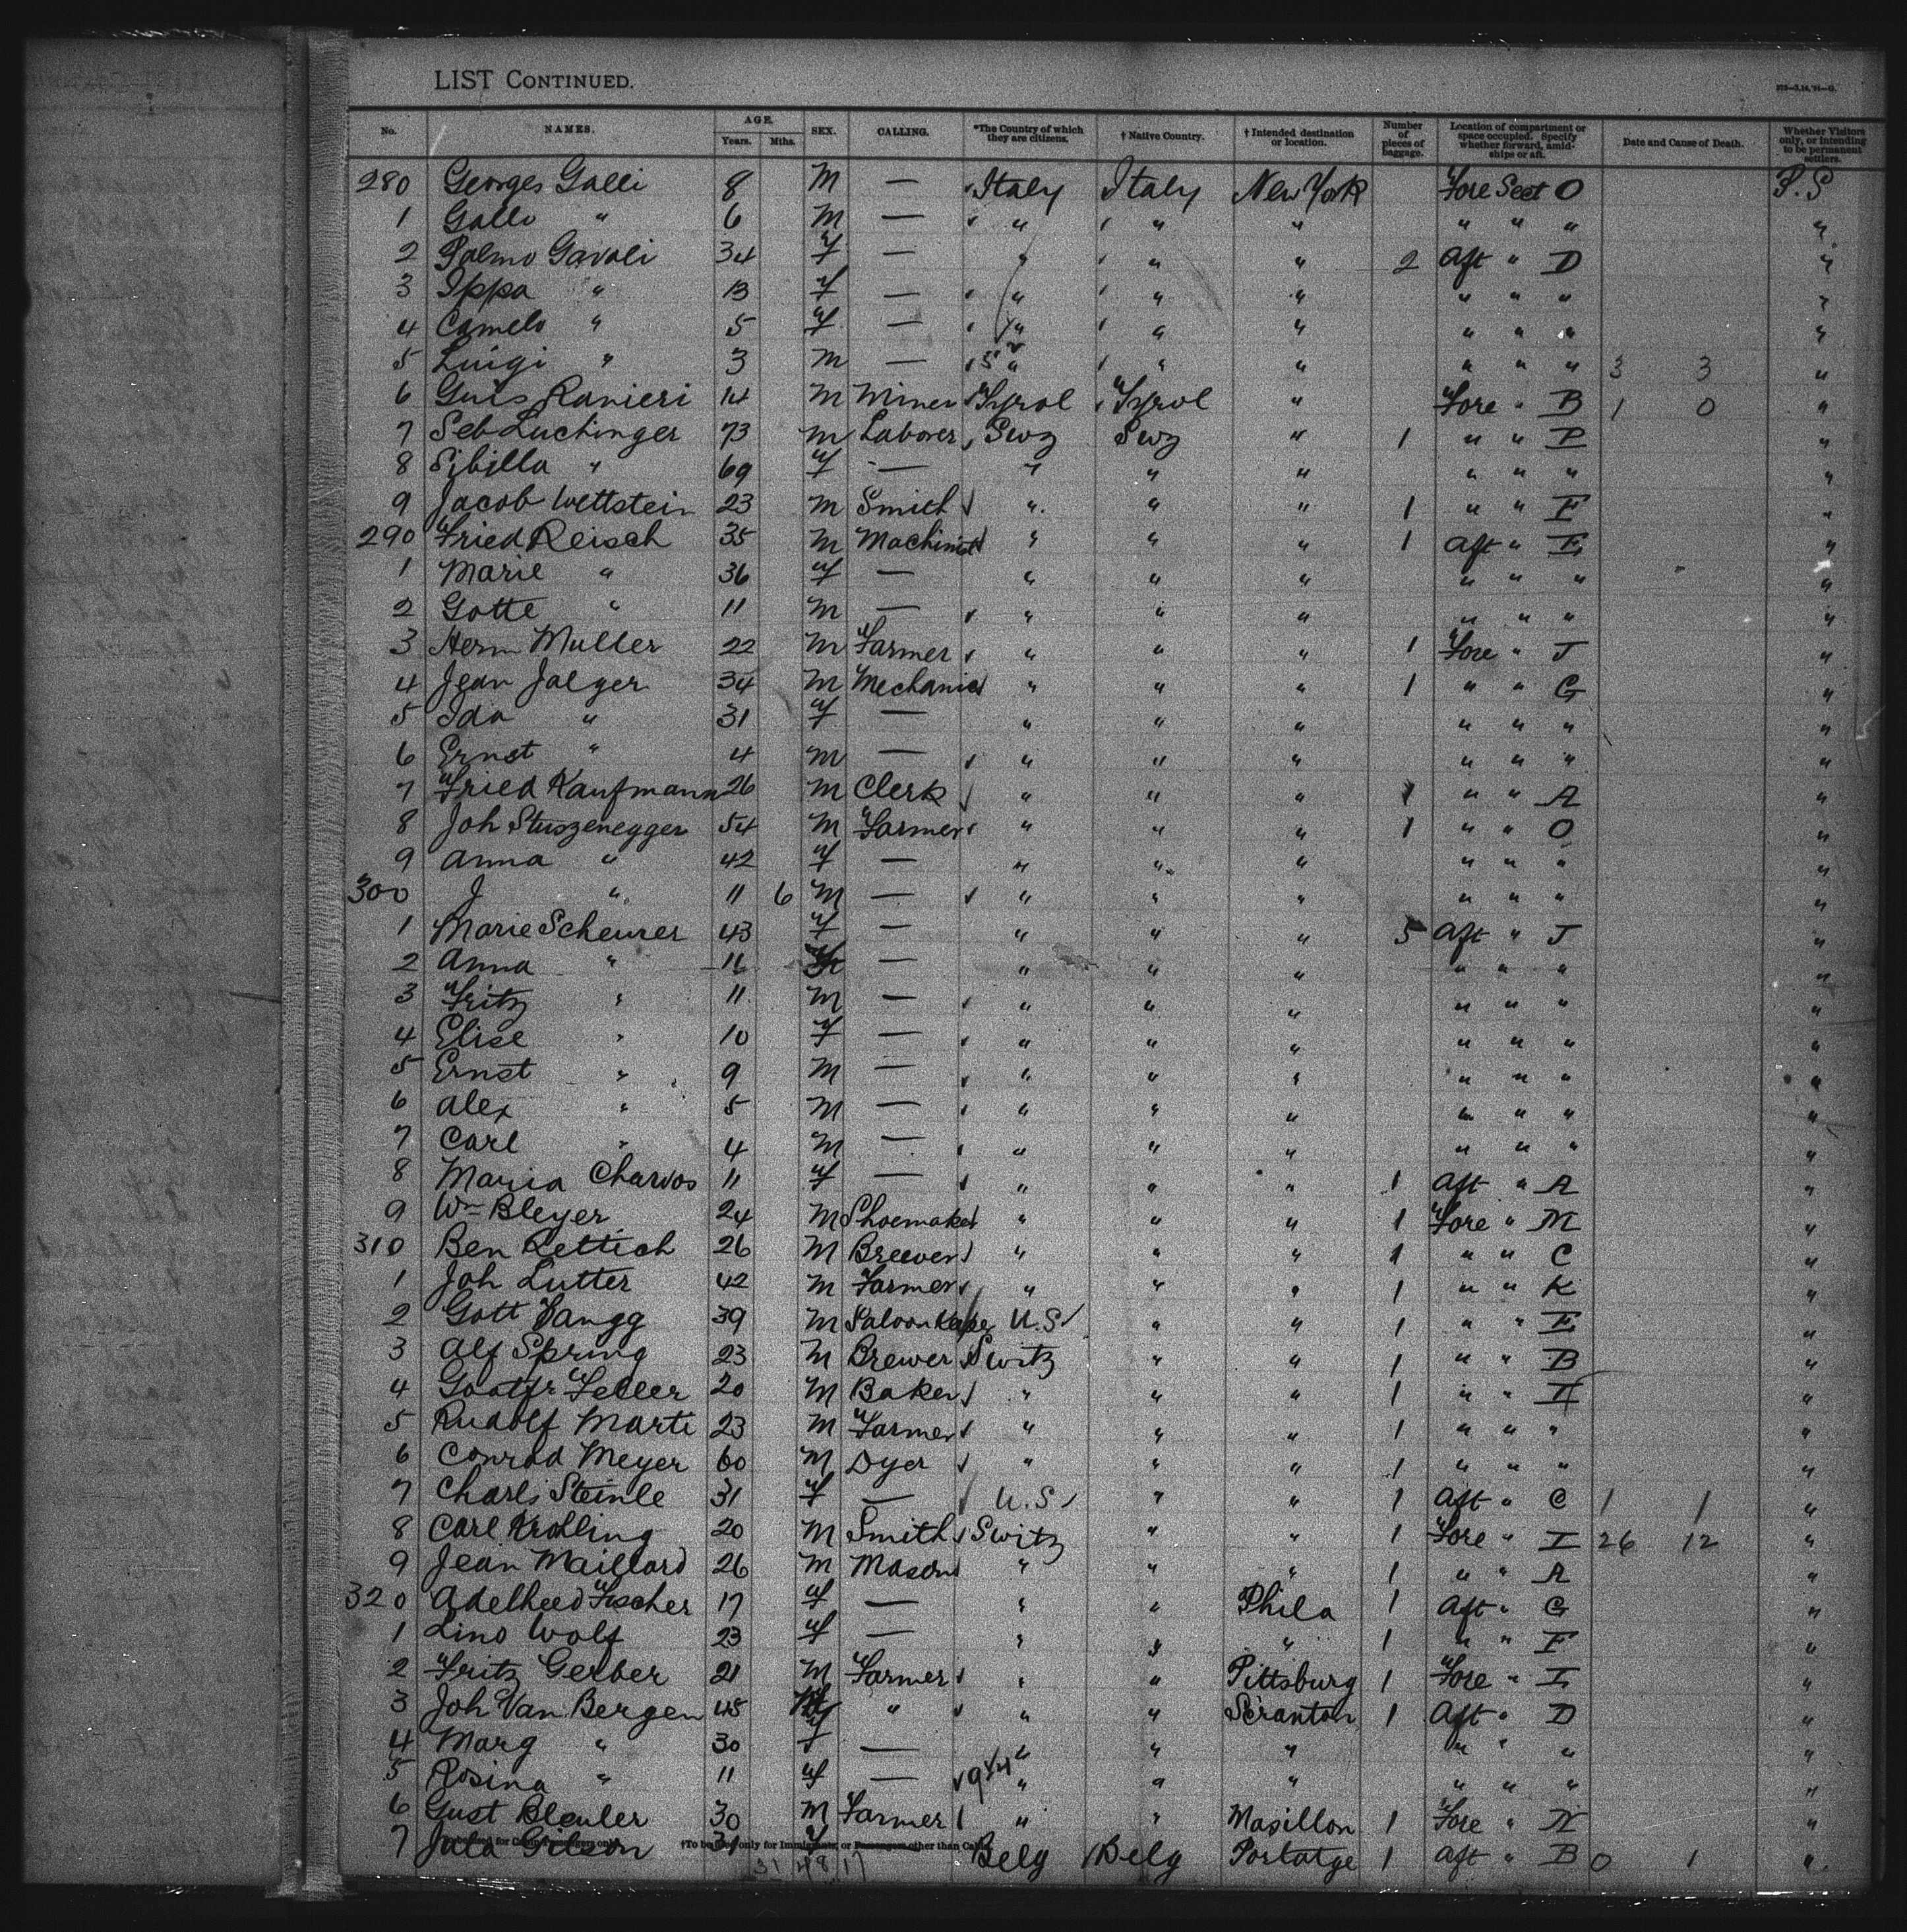 LIST CONTINUED.
No. NAMES. AGE. Years. Mths. SEX. CALLING. *The Country of which they are citizens. † Native Country. † Intended destination or location. Number of pieces of baggage. Location of compartment or space occupied. Specify whether forward, amidships or aft. Date and Cause of Death. Whether Visitors only, or intending to be permanent settlers.
280 Georges Galli 8 M — Italy Italy New York Fore Sect O P.S
1 Gallo " 6 M — " " " " " " "
2 Palmo Gavoli 34 f — " " " 2 Aft " D "
3 Ippa " 13 f — " " " " " " "
4 Camelo " 5 f — " " " " " " "
5 Luigi " 3 M — " " " " " " 3 3 "
6 Guis Ranieri 14 M Miner Tyrol Tyrol " Fore " B 1 0 "
7 Seb Luchinger 73 M Laborer Swz Swz " 1 " " P "
8 Sibilla " 69 f — " " " " " " "
9 Jacob Wettstein 23 M Smith " " " 1 " " F "
290 Fried Reisch 35 M Machinist " " " 1 Aft " E "
1 Marie " 36 f — " " " " " " "
2 Gotte " 11 M — " " " " " " "
3 Herm Muller 22 M Farmer " " " 1 Fore " J "
4 Jean Jaeger 34 M Mechanic " " " 1 " " G "
5 Ida " 31 f — " " " " " " "
6 Ernst " 4 M — " " " " " " "
7 Fried Kaufmann 26 M Clerk " " " 1 " " A "
8 Joh Stuszenegger 54 M Farmer " " " 1 " " O "
9 Anna " 42 f — " " " " " " "
300 J " 11 6 M — " " " " " " "
1 Marie Scheurer 43 f — " " " 5 Aft " J "
2 Anna " 16 — " " " " " " "
3 Fritz " 11 M — " " " " " " "
4 Elise " 10 f — " " " " " " "
5 Ernst " 9 M — " " " " " " "
6 Alex " 5 M — " " " " " " "
7 Carl " 4 M — " " " " " " "
8 Maria Charvos 11 f — " " " 1 Aft " A "
9 Wm Bleyer 24 M Shoemaker " " " 1 Fore " M "
310 Ben Rettich 26 M Brewer " " " 1 " " C "
1 Joh Lutter 42 M Farmer " " " 1 " " K "
2 Gott Vangg 39 M Saloon U.S " " 1 " " E "
3 Alf Spring 23 M Brewer Switz " " 1 " " B "
4 Feller 20 M Baker " " " 1 " " "
5 Rudolf Marti 23 M Farmer " " " 1 " " " "
6 Conrad Meyer 60 M Dyer " " " 1 " " " "
7 Charls Steinle 31 f — U.S " " 1 Aft " C 1 1 "
8 Carl Krolling 20 M Smith Switz " " 1 Fore " I 26 12 "
9 Jean Maillard 26 M Mason " " " 1 " " A "
320 Adelheed Fischer 17 f — " " Phila 1 Aft " G "
1 Lino Wolf 23 f — " " " 1 " " F "
2 Fritz Gerber 21 M Farmer " " Pittsburg 1 Fore " I "
3 Joh Van Bergen 45 M " " " Scranton 1 Aft " D "
4 Marg " 30 f — " " " " " " "
5 Rosina " 11 f — " " " " " " "
6 Gust Bleuler 30 M Farmer " " Masillon 1 Fore " N "
7 Jula Gilson f Belg Belg Portatge 1 Aft " B 0 1 "